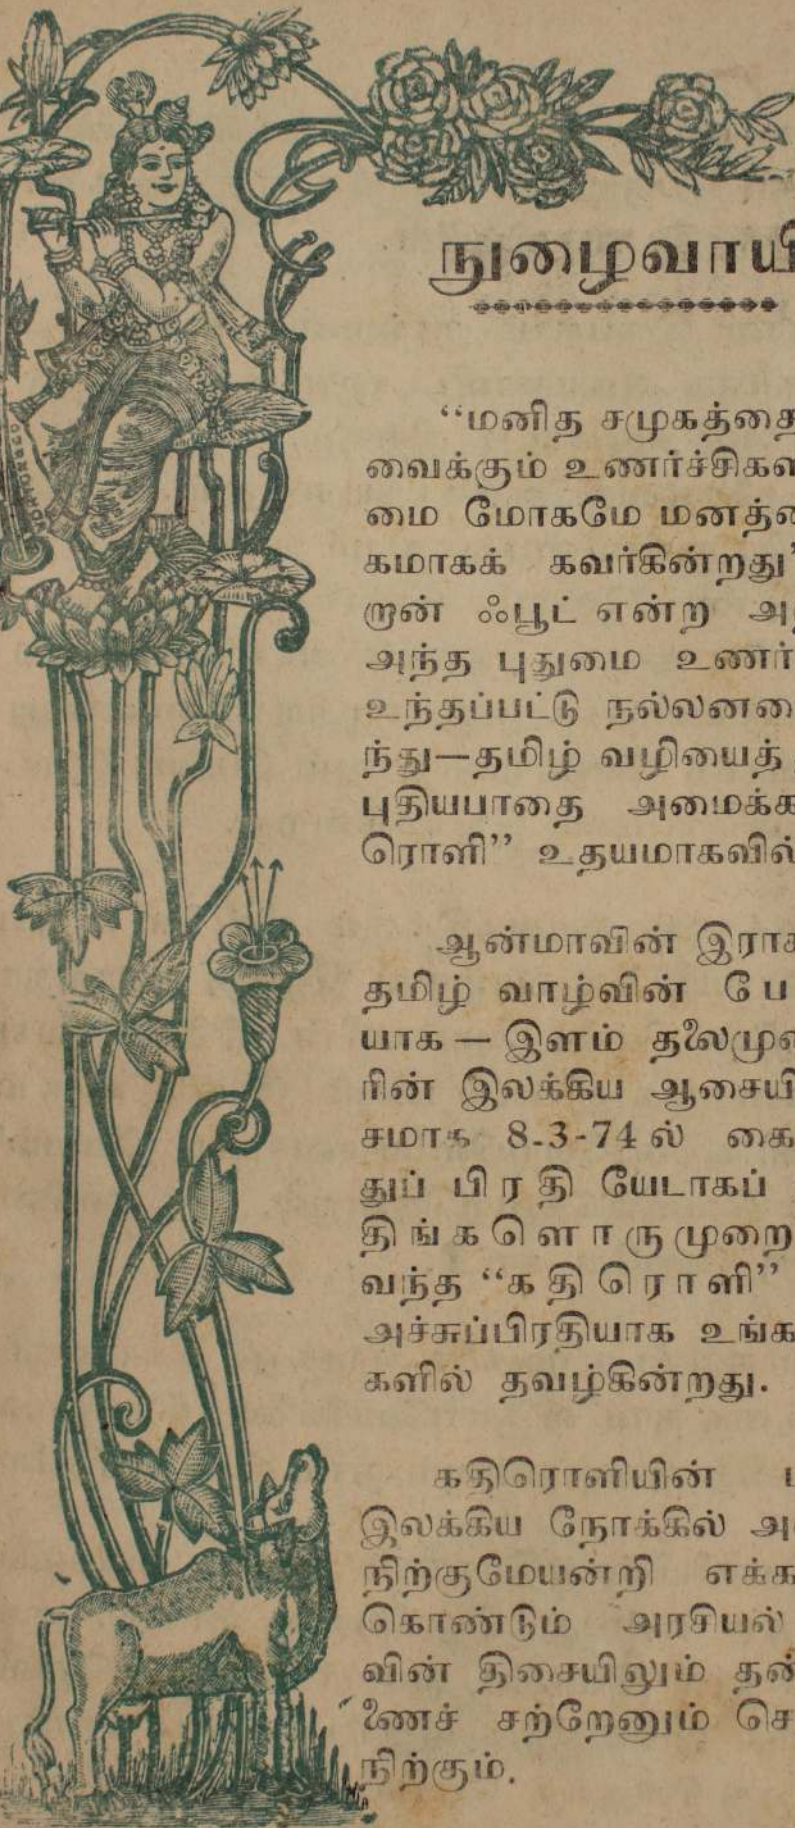 நுழைவாயி
“மனித சமுகத்தை
வைக்கும் உணர்ச்சிகள
மை மோகமே மனத்ை
கமாகக் கவர்கின்றது”
றன் ஃபூட் என்ற அ
அந்த புதுமை உணர்
உந்தப்பட்டு நல்லன
ந்து—தமிழ் வழியைத்
புதியபாதை அமைக்க
ரொளி” உதயமாகவில்
ஆன்மாவின் இராக
தமிழ் வாழ்வின் பே
யாக — இளம் தலைமு
ரின் இலக்கிய ஆசையி
சமாக 8-3-74 ல் கை
துப் பிரதி யேடாகப்
திங்களொருமுறை
வந்த “கதிரொளி”
அச்சுப்பிரதியாக உங்க
களில் தவழ்கின்றது.
கதிரொளியின்
இலக்கிய நோக்கில் அ
நிற்குமேயன்றி எக்க
கொண்டும் அரசியல்
வின் திசையிலும் தன்
ணைச் சற்றேனும் செ
நிற்கும்.